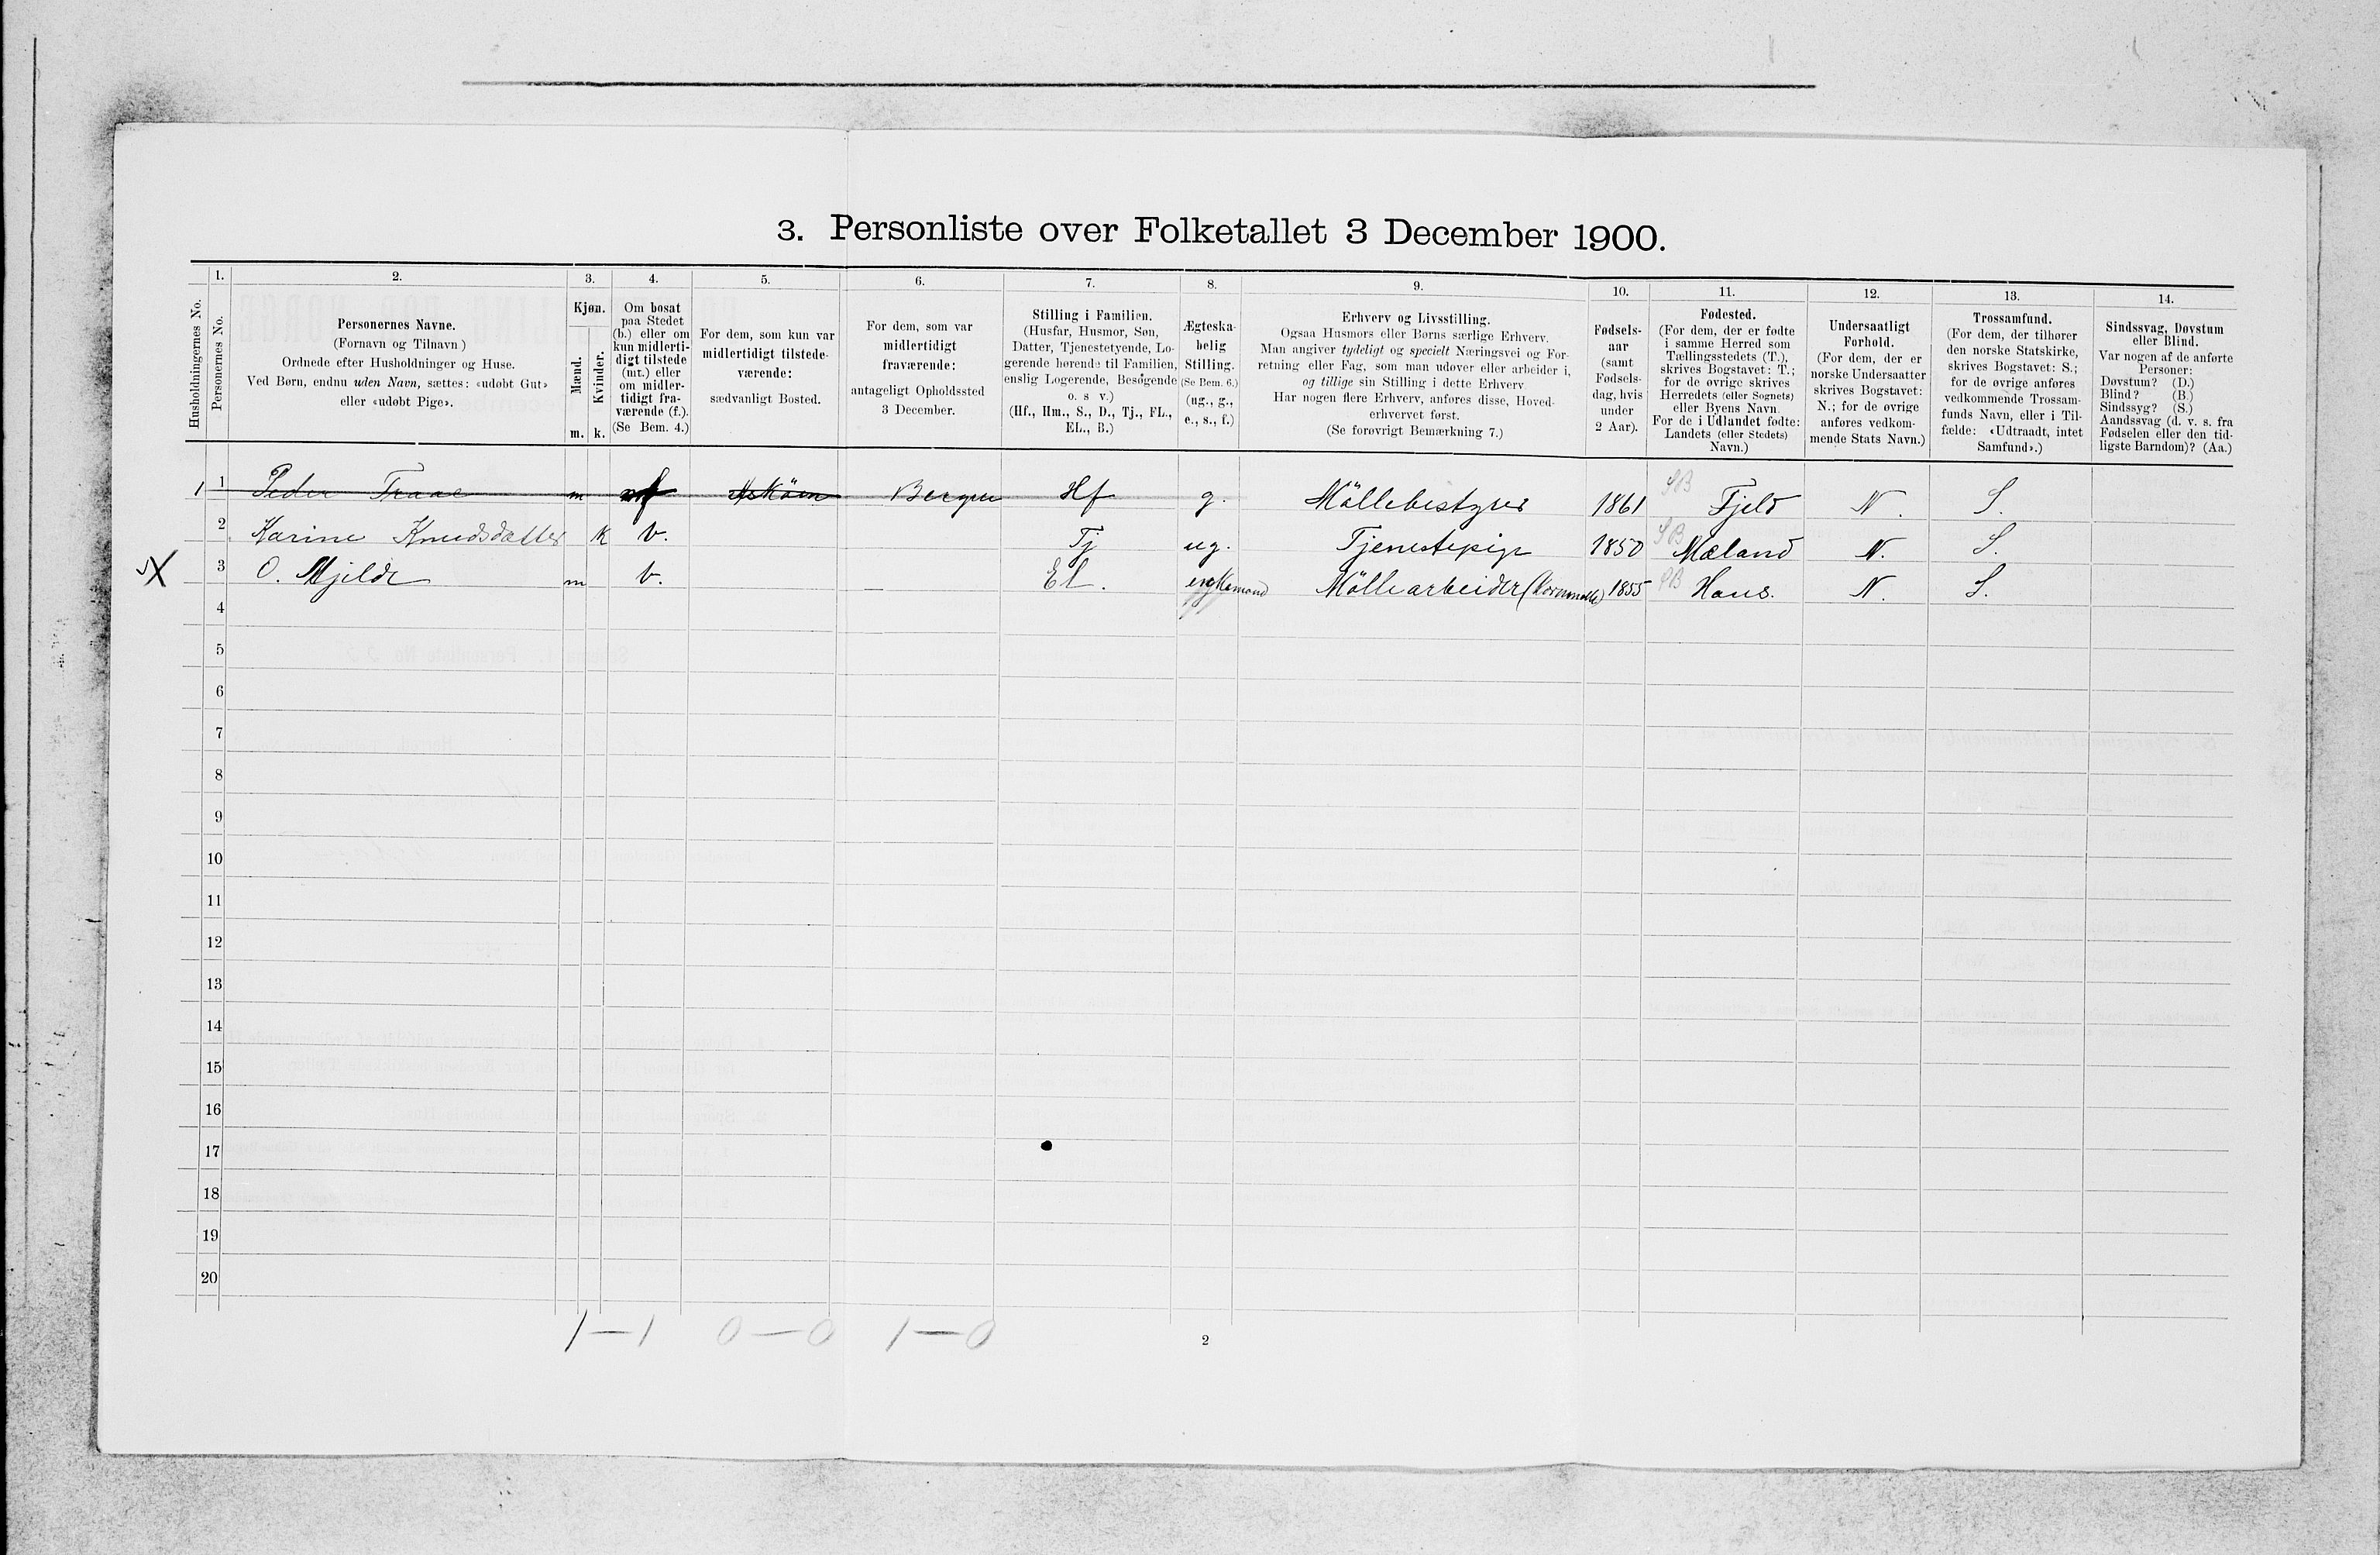 3. Personliste over Folketallet 3 December 1900.
1. 2. 3. 4. 5. 6. 7. 8. 9. 10. 11. 12. 13. 14.
Husholdningernes No.
Personernes No.
Personernes Navne.
(Fornavn og Tilnavn)
Ordnede efter Husholdninger og Huse.
Ved Børn, endnu uden Navn, sættes: «udøbt Gut»
eller «udøbt Pige».
Kjøn.
Mænd.
Kvinder.
m. k.
Om bosat
paa Stedet
(b.) eller om
kun midlerti-
digt tilstede
(mt.) eller
om midler-
tidigt fra-
værende (f.).
(Se Bem. 4.)
For dem, som kun var
midlertidigt tilstede-
værende:
sædvanligt Bosted.
For dem, som var
midlertidigt
fraværende:
antageligt Opholdssted
3 December.
Stilling i Familien.
(Husfar, Husmor, Søn,
Datter, Tjenestetyende, Lo-
gerende hørende til Familien,
enslig Logerende, Besøgende
o. s v.)
(Hf., Hm., S., D., Tj., FL.,
EL., B.)
Ægteska-
belig
Stilling.
(Se Bem. 6.)
(ug., g.,
e., s., f.)
Erhverv og Livsstilling.
Ogsaa Husmors eller Børns særlige Erhverv.
Man angiver tydeligt og specielt Næringsvei og For-
retning eller Fag, som man udøver eller arbeider i,
og tillige sin Stilling i dette Erhverv
Har nogen flere Erhverv, anføres disse, Hoved-
erhvervet først.
(Se forøvrigt Bemærkning 7.)
Fødsels-
aar
(samt
Fødsels-
dag, hvis
under
2 Aar).
Fødested.
(For dem, der er fødte
i samme Herred som
Tællingsstedets (T.),
skrives Bogstavet: T.;
for de øvrige skrives
Herredets (eller Sognets)
eller Byens Navn.
For de i Udlandet fødte:
Landets (eller Stedets)
Navn.)
Undersaatligt
Forhold.
(For dem, der er
norske Undersaatter
skrives Bogstavet:
N.; for de øvrige
anføres vedkom-
mende Stats Navn.)
Trossamfund.
(For dem, der tilhører
den norske Statskirke,
skrives Bogstavet: S.;
for de øvrige anføres
vedkommende Trossam-
funds Navn, eller i Til-
fælde: «Udtraadt, intet
Samfund».)
Sindssvag, Døvstum
eller Blind.
Var nogen af de anførte
Personer:
Døvstum? (D.)
Blind? (B.)
Sindssyg? (S.)
Aandssvag (d. v. s. fra
Fødselen eller den tid-
ligste Barndom)? (Aa.)
1 1 Peder Traae m f Askøen Bergen Hf g. Möllebestyrer 1861 SB Fjeld N. S.
2 Karine Knudsdatter K b. Tj ug. Tjenestepige 1850 SB Mæland N. S.
X 3 O. Mjelde m b. — El. enkemand Möllearbeider (Kornmölle) 1855 SB Haus. N. S.
4
5
6
7
8
9
10
11
12
13
14
15
16
17
18
19
20
1—1 0—0 1—0
2